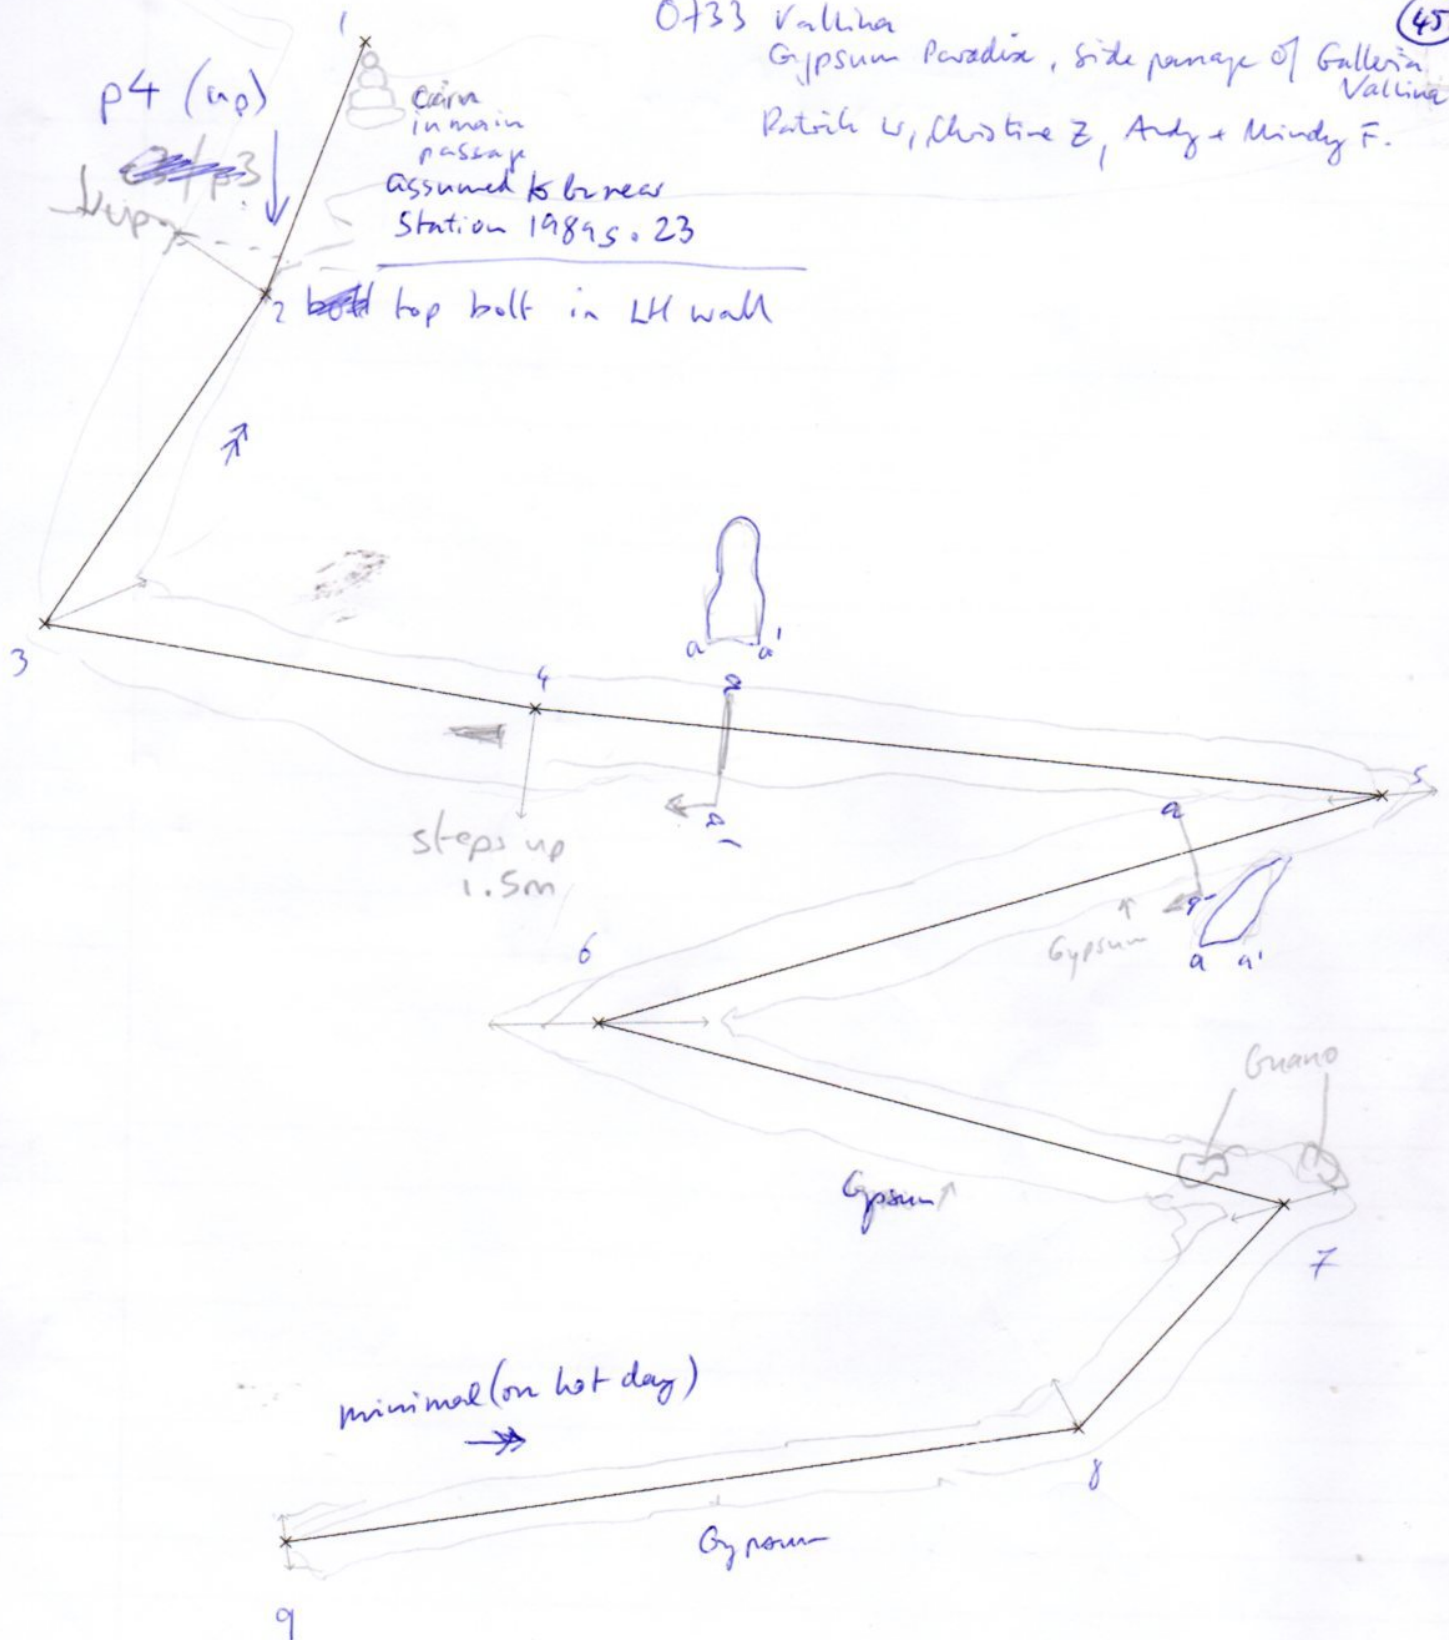 0733 Vallina
45
Gypsum Paradise, side passage of Galleria
Vallina
Patrick W, Christine Z, Andy + Mindy F.
1
p4 (up)
cairn
in main
passage
assumed to be near
Station 1989s.23
2 top bolt in LH wall
3
a a'
4
a
a'
5
steps up
1.5m
a
a'
a a'
Gypsum
6
Guano
Gypsum
7
minimal (on hot day)
8
Gypsum
9